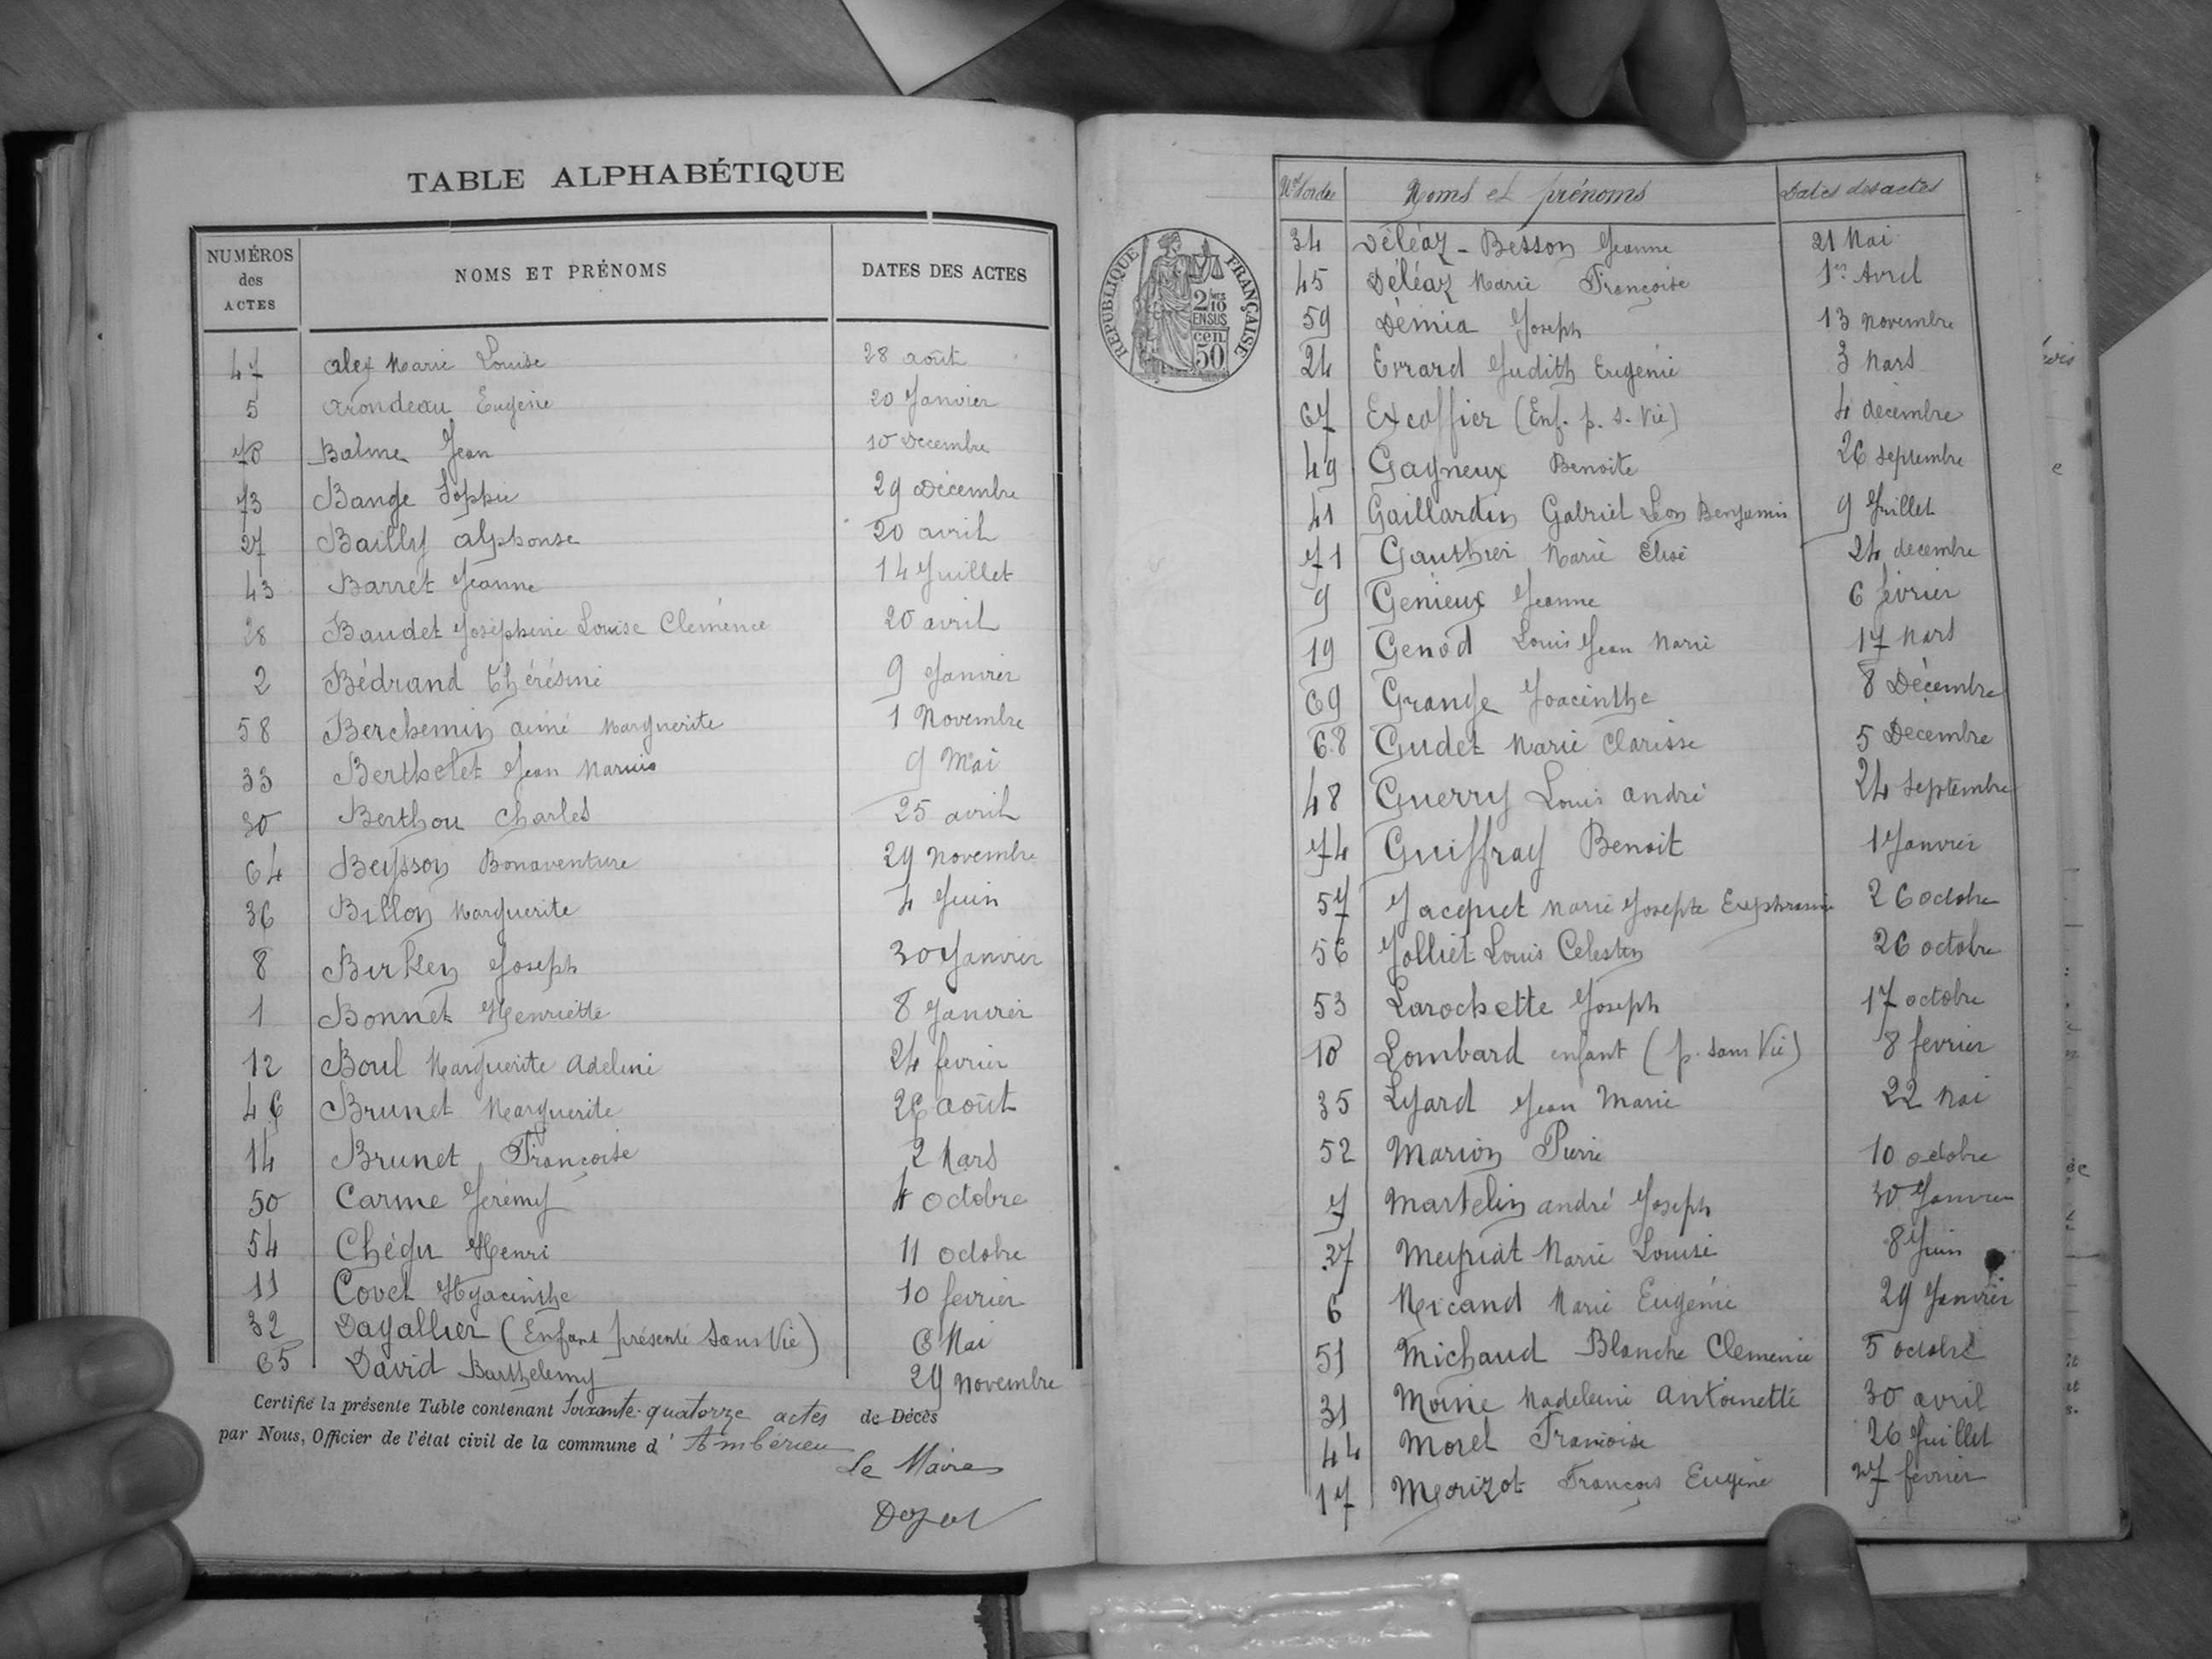 TABLE ALPHABÉTIQUE
NUMÉROS des ACTES NOMS ET PRÉNOMS DATES DES ACTES
47 Alex Marie Louise 28 août
5 Arondeau Eugénie 20 Janvier
70 Balme Jean 10 Décembre
73 Bange Sophie 29 Décembre
27 Bailly Alphonse 20 avril
43 Barret Jeanne 14 Juillet
28 Baudet Joséphine Louise Clémence 20 avril
2 Bédrand Thérésine 9 Janvier
58 Berchemin Aimé Marguerite 1 Novembre
33 Berthelet Jean Marius 9 Mai
30 Berthou Charles 25 avril
64 Beysson Bonaventure 29 Novembre
36 Billon Marguerite 4 Juin
8 Birken Joseph 30 Janvier
1 Bonnet Henriette 8 Janvier
12 Boul Marguerite Adeline 24 fevrier
46 Brunet Marguerite 26 août
14 Brunet Françoise 2 Mars
50 Carme Jérémy 4 Octobre
54 Chégu Henri 11 octobre
11 Covet Hyacinthe 10 fevrier
32 Dagallier (Enfant présenté sans Vie) 6 Mai
65 David Barthelemy 29 Novembre
Certifié la présente Table contenant soixante-quatorze actes de Décès
par Nous, Officier de l'état civil de la commune d' Ambérieu
Le Maire
RÉPUBLIQUE FRANÇAISE
2/10 EN SUS
50 cen.
Nos d'ordre Noms et prénoms Dates des actes
34 Déléaz - Besson Jeanne 21 Mai
45 Déléaz Marie Françoise 1er Avril
59 Démia Joseph 13 Novembre
24 Evrard Judith Eugénie 3 Mars
67 Excoffier (Enf. p. s. Vie) 4 décembre
49 Gagneux Benoite 26 septembre
41 Gaillardin Gabriel Léon Benjamin 9 Juillet
71 Gauthier Marie Elise 24 decembre
9 Genieux Jeanne 6 fevrier
19 Genod Louis Jean Marie 17 Mars
69 Grange Joacinthe 8 Décembre
68 Gudet Marie Clarisse 5 Décembre
48 Guerry Louis André 24 septembre
74 Guiffray Benoit 1 Janvier
57 Jacquet Marie Josephte Euphrasie 26 octobre
56 Jolliet Louis Celestin 26 octobre
53 Larochette Joseph 17 octobre
10 Lombard enfant (p. sans Vie) 8 fevrier
35 Lyard Jean Marie 22 Mai
52 Marion Pierre 10 octobre
7 Martelin André Joseph 30 Janvier
37 Meyriat Marie Louise 8 Juin
6 Micand Marie Eugénie 29 Janvier
51 Michaud Blanche Clemencie 5 octobre
31 Moine Madeleine Antoinette 30 avril
44 Morel Françoise 26 Juillet
17 Morizot François Eugène 27 fevrier